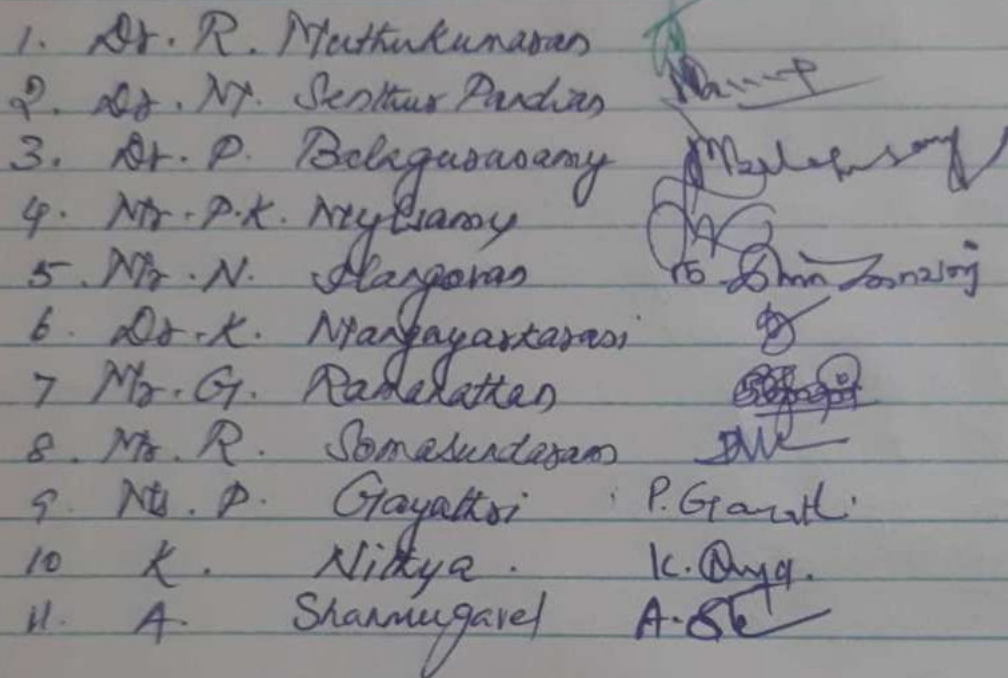 1. Dr. R. Muthukumaran
2. Dr. M. Senthur Pandian
3. Dr. P. Balagurusamy
4. Mr. P.K. Mylsamy
5. Mr. N. Elangovan
6. Dr. K. Mangayarkarasi
7 Mr. G. Ramanathan
8. Mr. R. Somasundaram
9. Ms. P. Gayathri P. Gayathri
10 K. Nithya. K.
11. A. Shanmugavel A.